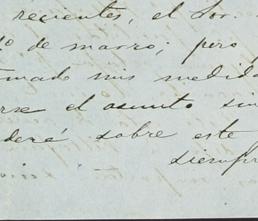 recientes, el Sor.
1o de marzo; pero
mado mis medida
rse el asunto sin
derá sobre este
siempre